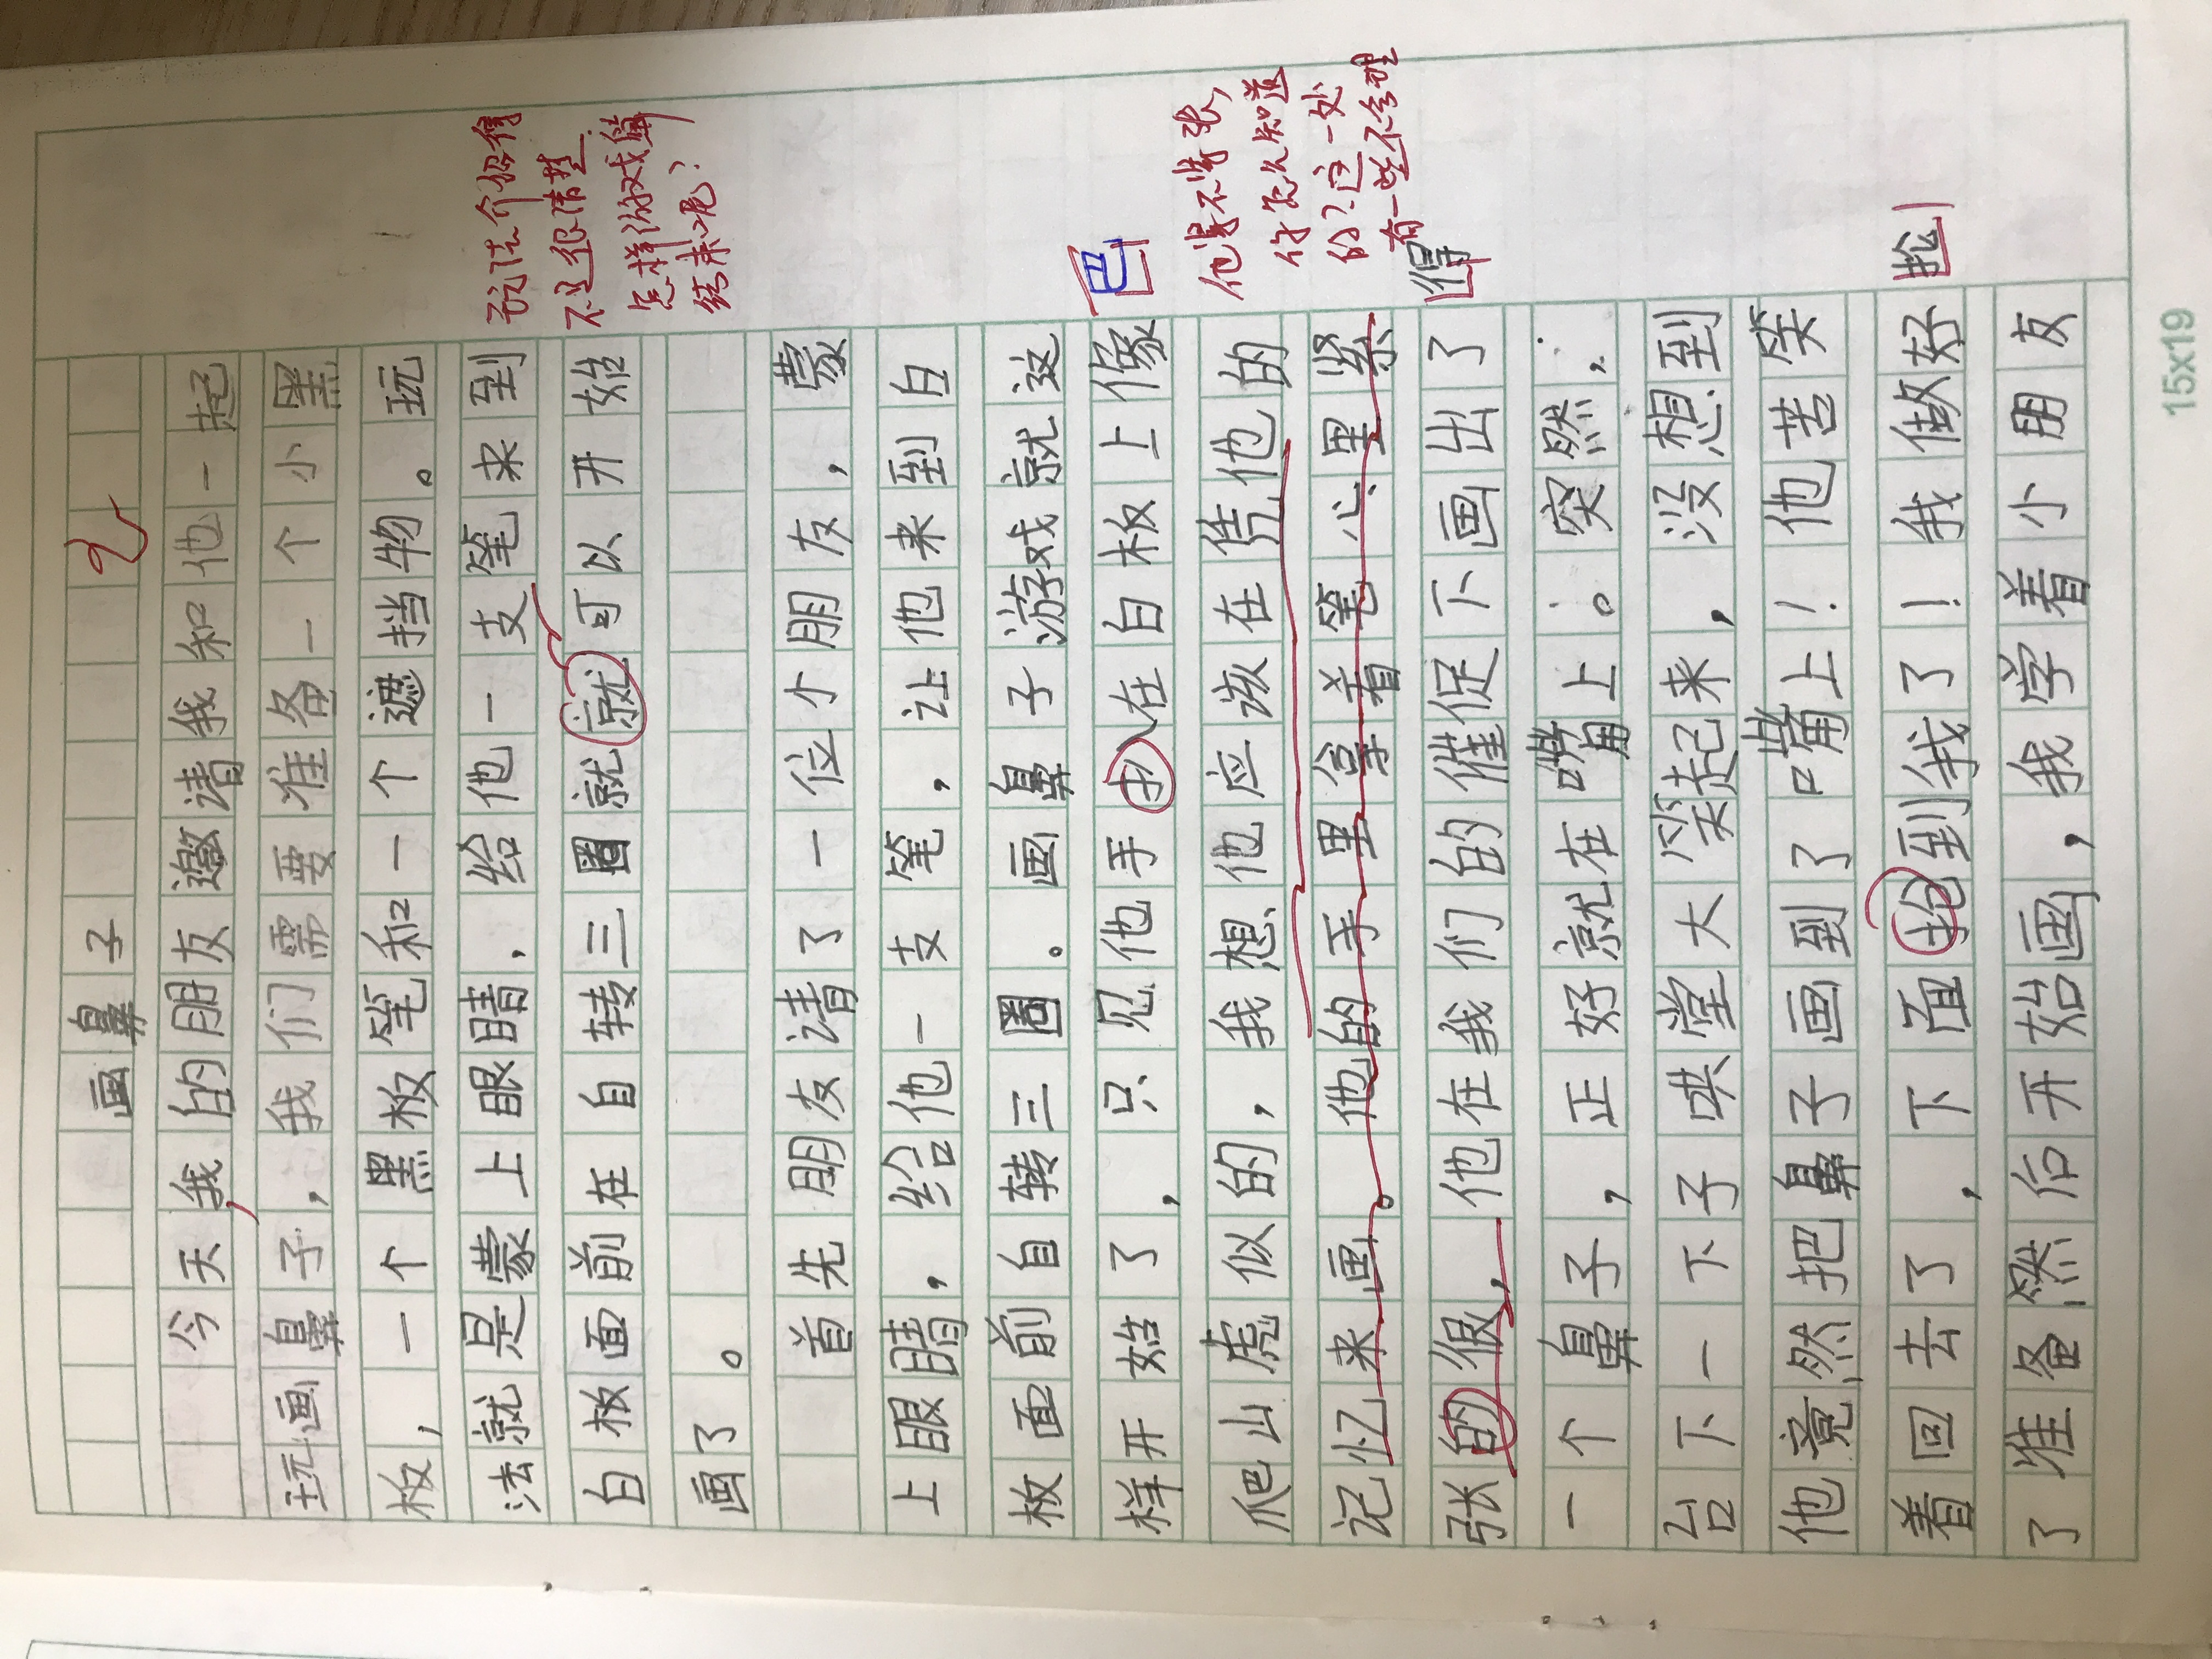 画鼻子
今天我的朋友邀请我和他一起
，
玩画鼻子，我们需要准备一个小黑
板，一个黑板笔和一个遮挡物。玩
法就是蒙上眼睛，给他一支笔来到
白板面前在自转三圈就就可以开始
画了。
玩法介绍得
不是很清楚
怎样游戏算
结束呢？
首先朋友请了一位小朋友，蒙
上眼睛，给他一支笔，让他来到白
板面前自转三圈。画鼻子游戏就这
样开始了，只见他手扒在白板上像
巴
爬山虎似的，我想他应该在凭他的
记忆来画。他的手里拿着笔心里紧
张的很，他在我们的催促下画出了
他紧不紧张，
你怎么知道
的？这一处
有一些不合理
得
一个鼻子，正好就在嘴上。突然，
台下一下子哄堂大笑起来，没想到
他竟然把鼻子画到了嘴上！他苦笑
着回去了，下面抢到我了！我做好
抡
了准备然后开始画，我学着小朋友
15x19